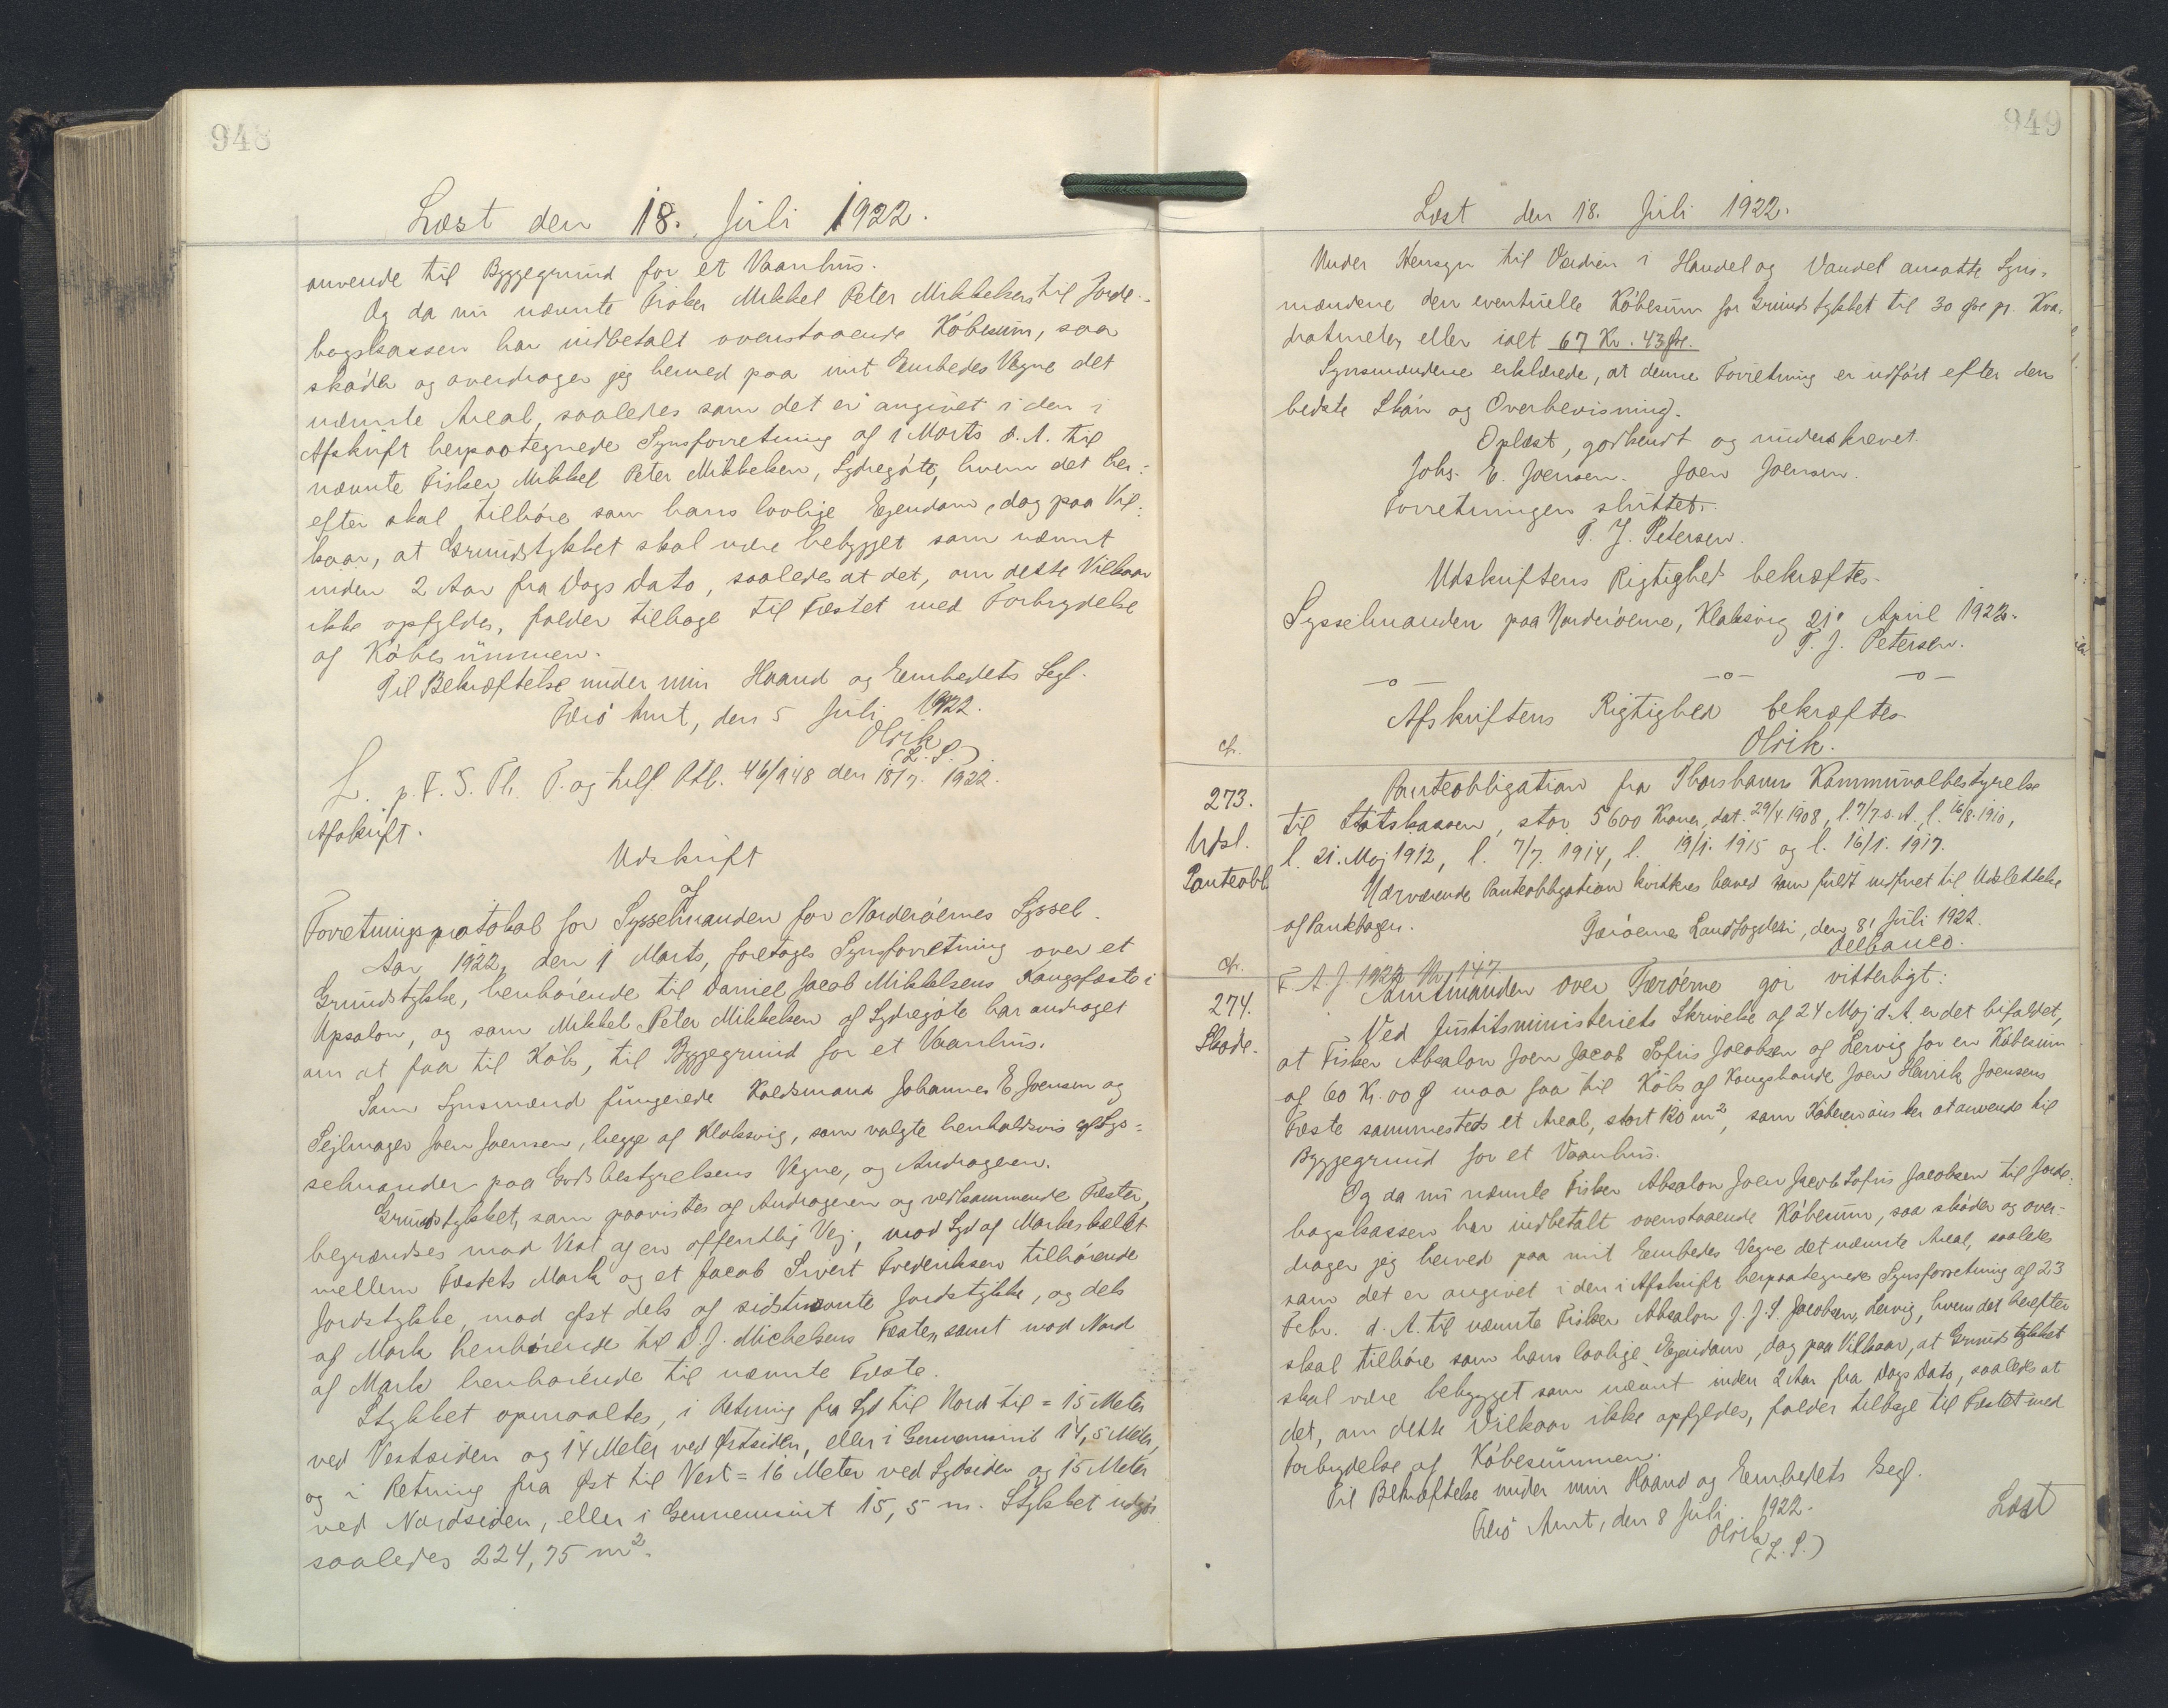 948
Læst den 18. Juli 1922.
anvende til Byggegrund for et Vaanhus.
Og da nu nævnte Fisker Mikkel Peter Mikkelsen til Jorde-
bogskassen har indbetalt ovenstaaende Købesum, saa
skøder og overdrager jeg herved paa mit Embedes Vegne det
nævnte Areal, saaledes som det er angivet i den i
Afskrift herpaategnede Synsforretning af 1 Marts d.A. til
nævnte Fisker Mikkel Peter Mikkelsen, Sydregøte, hvem det her-
efter skal tilhøre som hans lovlige Ejendom, dog paa Vil-
kaar, at Grundstykket skal være bebygget som nævnt
inden 2 Aar fra Dags Dato, saaledes at det, om dette Vilkaar
ikke opfyldes, falder tilbage til Fæstet med Forbrydelse
af Købesummen.
Til Bekræftelse under min Haand og Embedets Segl.
Færø Amt, den 5 Juli 1922.
Olrik
(L.S.)
L. p. F. S. Th. P. og 46/948 den 18/7. 1922.
Afskrift.
Udskrift
af
Forretningsprotokol for Sysselmanden for Norderøernes Syssel.
Aar 1922, den 1 Marts, foretoges Synsforretning over et
Grundstykke, henhørende til Daniel Jacob Mikkelsens Kongsfæste i
Upsalon, og som Mikkel Peter Mikkelsen af Sydregøte har andraget
om at faa til Købs, til Byggegrund for et Vaanhus.
Som Synsmænd fungerede Johannes E Joensen og
Sejlmager Joen Joensen, begge af Klaksvig, som valgte henholdsvis af Sys-
selmanden paa Godsbestyrelsens Vegne, og Andrageren.
Grundstykket, som paavistes af Andrageren og vedkommende Fæster,
begrændses mod Vest af en offentlig Vej, mod Syd af Markeskellet
mellem Fæstets Mark og et Jacob Sivert Frederiksen tilhørende
Jordstykke, mod Øst dels af sidstnævnte Jordstykke, og dels
af Mark henhørende til D. J. Michelsens Fæste, samt mod Nord
af Mark henhørende til nævnte Fæste.
Stykket opmaaltes, i Retning fra Syd til Nord til = 15 Meter
ved Vestsiden og 14 Meter ved Østsiden, eller i Gennemsnit 14,5 Meter,
og i Retning fra Øst til Vest = 16 Meter ved Sydsiden og 15 Meter
ved Nordsiden, eller i Gennemsnit 15,5 m. Stykket udgør
saaledes 224,75 m².
949
Læst den 18. Juli 1922.
Under Hensyn til Værdien i Handel og Vandel ansatte Syns-
mændene den eventuelle Købesum for Grundstykket til 30 Øre pr. Kva-
dratmeter, eller ialt 67 Kr. 43 Øre.
Synsmændene erklærede, at denne Forretning er udført efter den
bedste Skøn og Overbevisning.
Oplæst, godkendt og underskrevet.
Johs. E. Joensen. Joen Joensen.
Forretningen sluttet.
T. J. Petersen.
Udskriftens Rigtighed bekræftes.
Sysselmanden paa Norderøerne, Klaksvig 21. April 1922.
T. J. Petersen.
—o— —o— —o—
Afskriftens Rigtighed bekræftes
Olrik.
273.
Udsl.
Panteobl.
Panteobligation fra Thorshavns Kommunalbestyrelse
til Statskassen, stor 5600 Kroner, dat. 29/4 1908, l. 7/7 s. A., l. 16/8. 1910,
l. 21. Maj 1912, l. 7/7. 1914, l. 19/1. 1915 og l. 16/1. 1917.
Nærværende Panteobligation kvitteres herved som fuldt indfriet til Udslettelse
af Pantebogen.
Færøernes Landfogderi, den 8' Juli 1922.
Delbanco.
F. A. J. 1922 Nr. 147
274.
Skøde.
Amtmanden over Færøerne gør vitterligt:
Ved Justitsministeriets Skrivelse af 24 Maj d.A. er det bifaldet,
at Fisker Absalon Joen Jacob Sofus Jacobsen af Lervig for en Købesum
af 60 Kr. 00 Ø maa faa til Købs af Kongsbonde Joen Henrik Joensens
Fæste sammesteds et Areal, stort 120 m², som Køberen ønsker at anvende til
Byggegrund for et Vaanhus.
Og da nu nævnte Fisker Absalon Joen Jacob Sofus Jacobsen til Jorde-
bogskassen har indbetalt ovenstaaende Købesum, saa skøder og over-
drager jeg herved paa mit Embedes Vegne det nævnte Areal, saaledes
som det er angivet i den i Afskrift herpaategnede Synsforretning af 23
Febr. d. A. til nævnte Fisker Absalon J. J. S. Jacobsen, Lervig, hvem det herefter
skal tilhøre som hans lovlige Ejendom, dog paa Vilkaar, at Grundstykket
skal være bebygget som nævnt inden 2 Aar fra Dags Dato, saaledes at
det, om dette Vilkaar ikke opfyldes, falder tilbage til Fæstet med
Forbrydelse af Købesummen.
Til Bekræftelse under min Haand og Embedets Segl.
Færø Amt, den 8 Juli 1922.
Olrik
(L. S.)
Læst